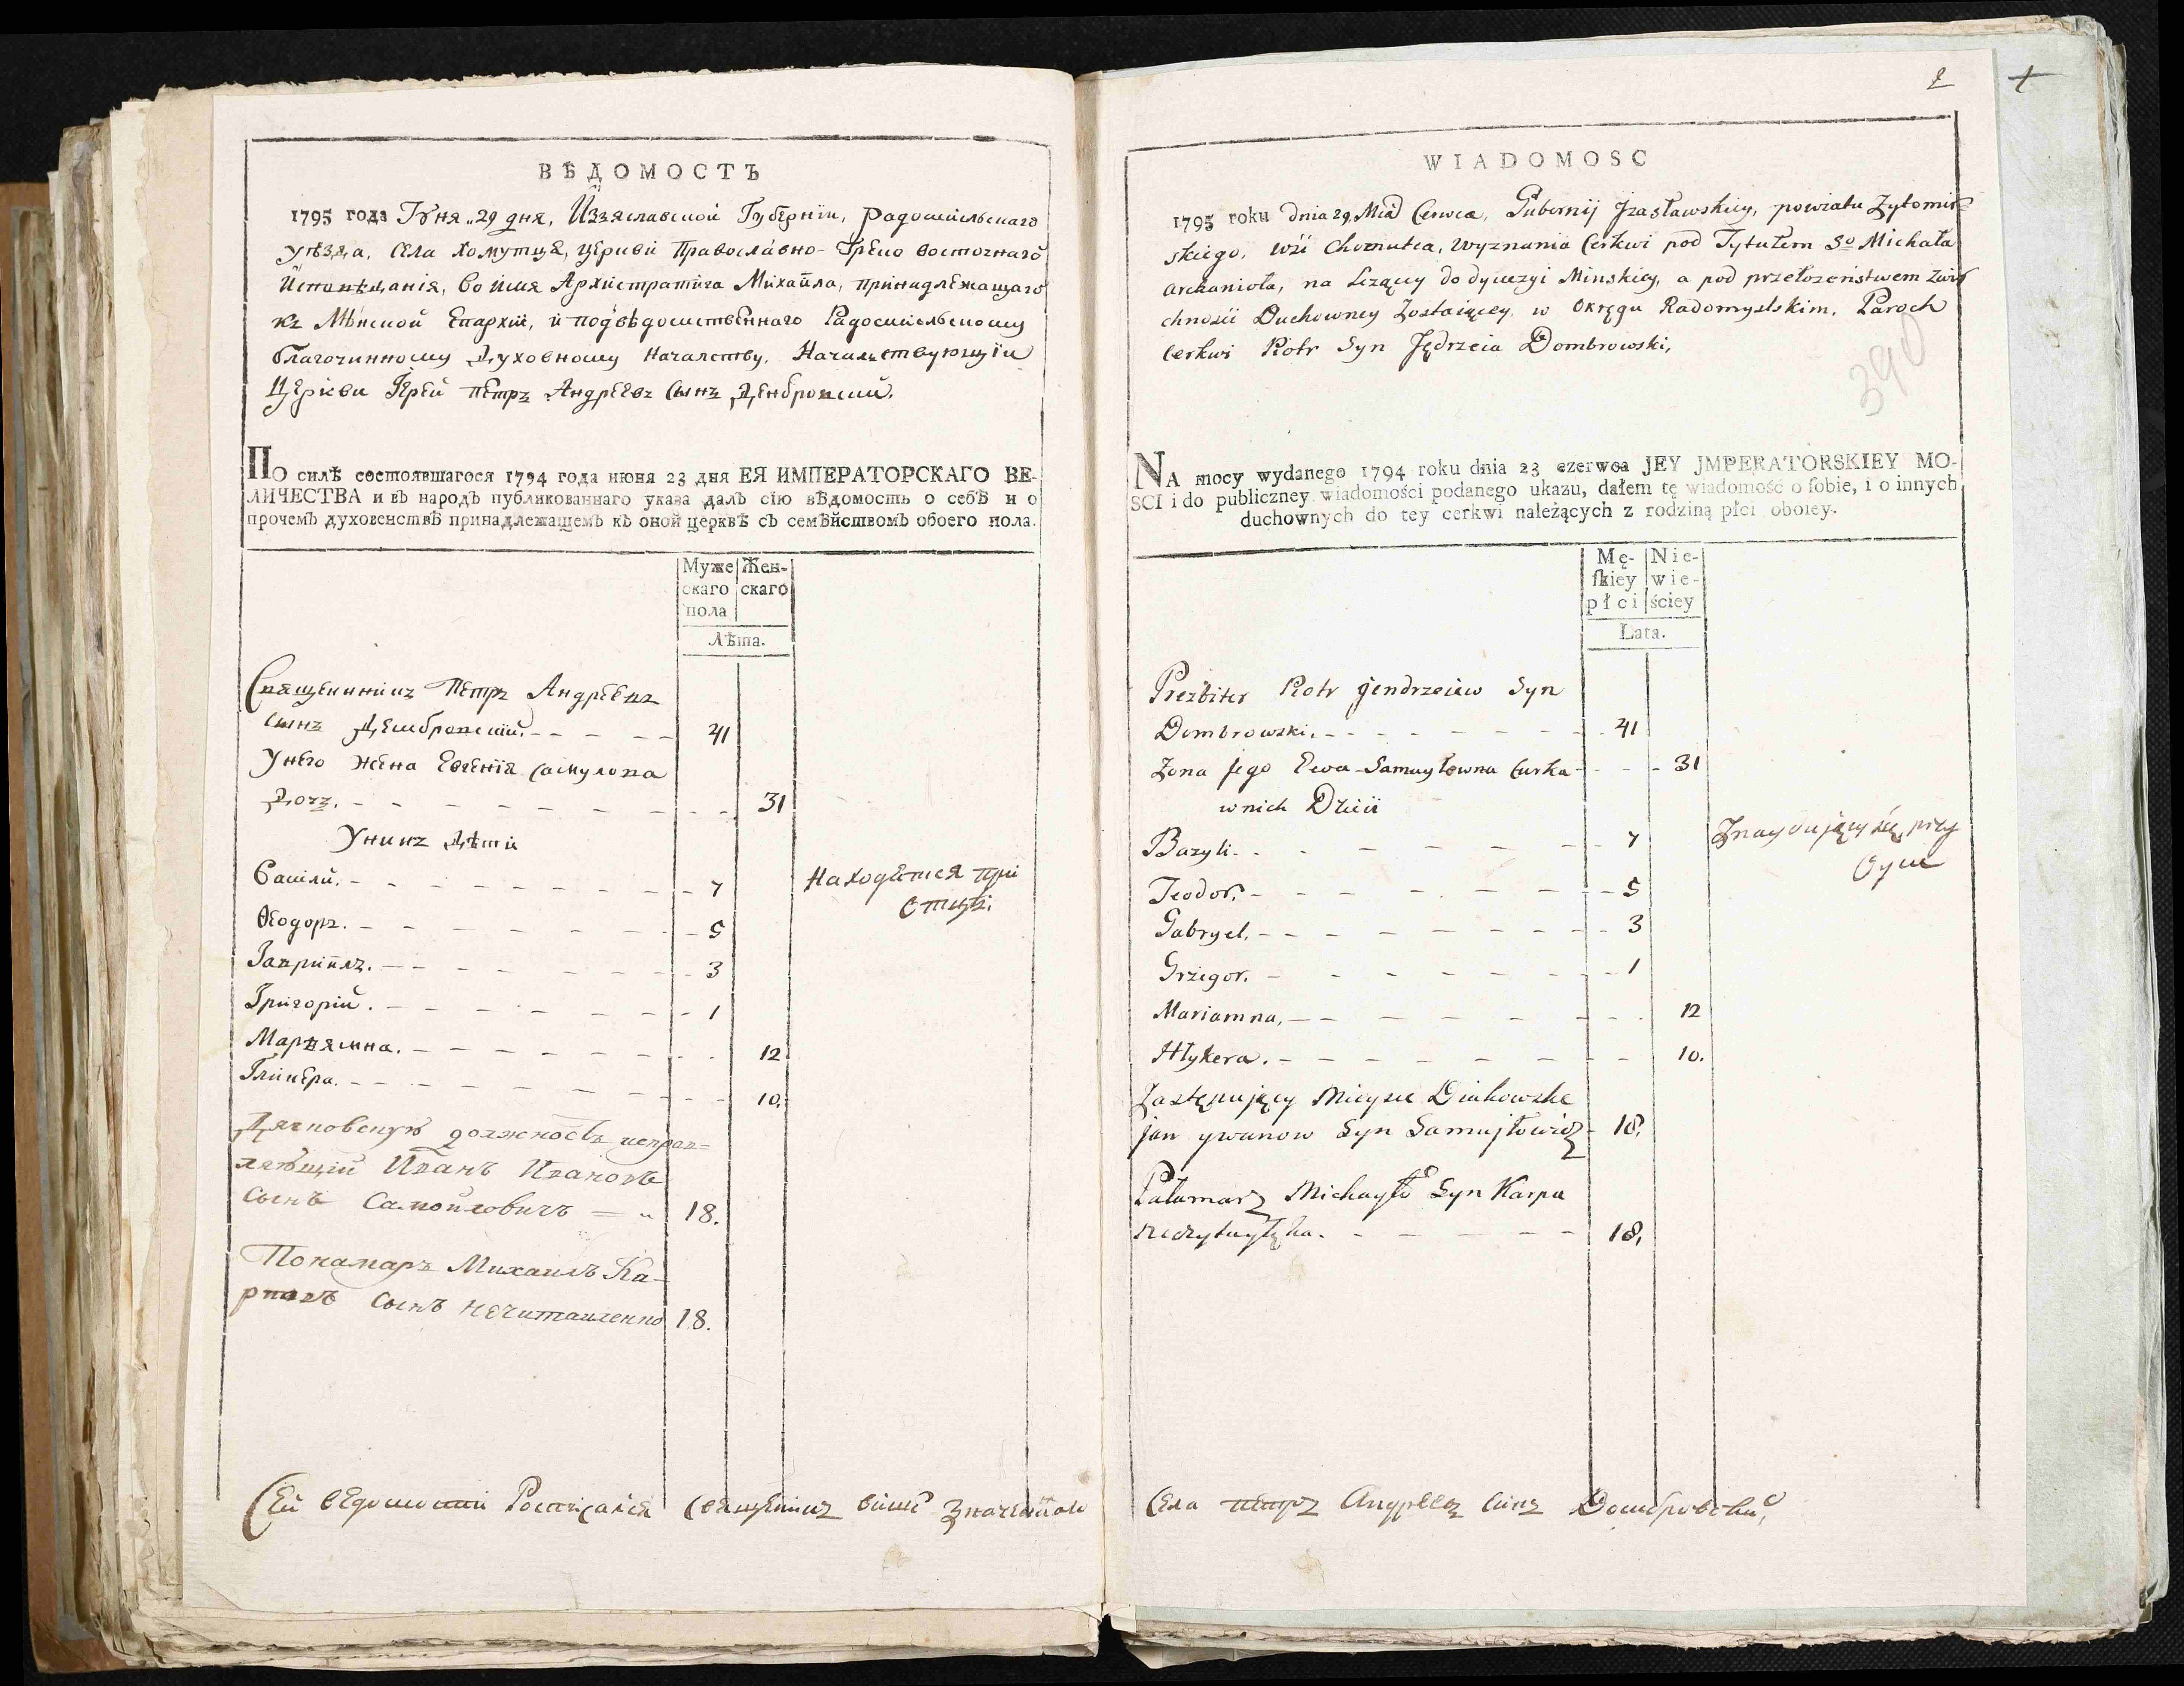 ВѢДОМОСТЪ
1795 года Іуня 29 дня, Изяславской Губерніи, Радомисльскаго
уѣзда, села Хомутца, церкви Православно-Греко восточнаго
Исповѣданія, во имя Архистратига Михаила, принадлежащаго
къ Мѣнской Епархіи, и подвѣдомственнаго Радомисльскому
благочинному Духовному Началству, Началствующій
Церкви Іерей Петръ Андреевъ сынъ Денбровскій.
По силѣ состоявшагося 1794 года июня 23 дня ЕЯ ИМПЕРАТОРСКАГО ВЕ-
ЛИЧЕСТВА и въ народъ публикованнаго указа далъ сію вѣдомость о себѣ и о
прочемъ духовенствѣ принадлежащемъ къ оной церквѣ съ семѣйствомъ обоего пола.
Муже Жен-
скаго скаго
пола
Лѣта.
Священникъ Петръ Андреевъ
сынъ Дембровскій. 41
У него жена Евгенія Самулова
Дочъ. 31
У нихъ Дѣти
Василій. 7 Находятся при
Отцѣ.
Ѳеодоръ. 5
Гавриилъ. 3
Григорій. 1
Маріямна. 12
Гликера. 10.
Дячковскую должность исправ=
ляющій Иванъ Ивановъ
сынъ Самойловичъ 18.
Понамаръ Михаилъ Ка-
рповъ сынъ Нечитайленко 18.
Сей ведомости Росписался священикъ више значенной
2 +
WIADOMOSC
1795 roku Dnia 29, Mca Cerwca, Gubernij Jzasławskiey, powiatu Zytomir=
skiego, wsi Chomutca, Wyznania Cerkwi pod Tytułem So Michała
Archanioła, na Leząęy do dyiecezyi Minskiey, a pod przełozeństwem zwir
chnosci Duchowney Zostaięcey w Okręgu Radomyslskim, Paroch
Cerkwi Piotr Syn Jędrzeia Dombrowski,
390
NA mocy wydanego 1794 roku dnia 23 czerwca JEY JMPERATORSKIEY MO-
SCI i do publiczney wiadomości podanego ukazu, dałem tę wiadomość o sobie, i o innych
duchownych do tey cerkwi należących z rodziną płci oboiey.
Mę- Nie-
skiey wie-
płci ściey
Lata.
Prezbiter Piotr Jendrzeiew Syn
Dombrowski. 41
Zona Jego Ewa Samuyłowna Curka 31
w nich Dzieci
Bazyli. 7 Znayduiący się przy
Oycu
Teodor. 5
Gabryel. 3
Grzegor. 1
Mariamna, 12
Hlykera. 10.
Zastępujący Mieysce Diakowske
Jan ywanow Syn Samujłowicz 18,
Pałamarz Michayło Syn Karpa
Neczytayłęka. 18,
Села Петръ Андреевъ синъ Домбровскій,